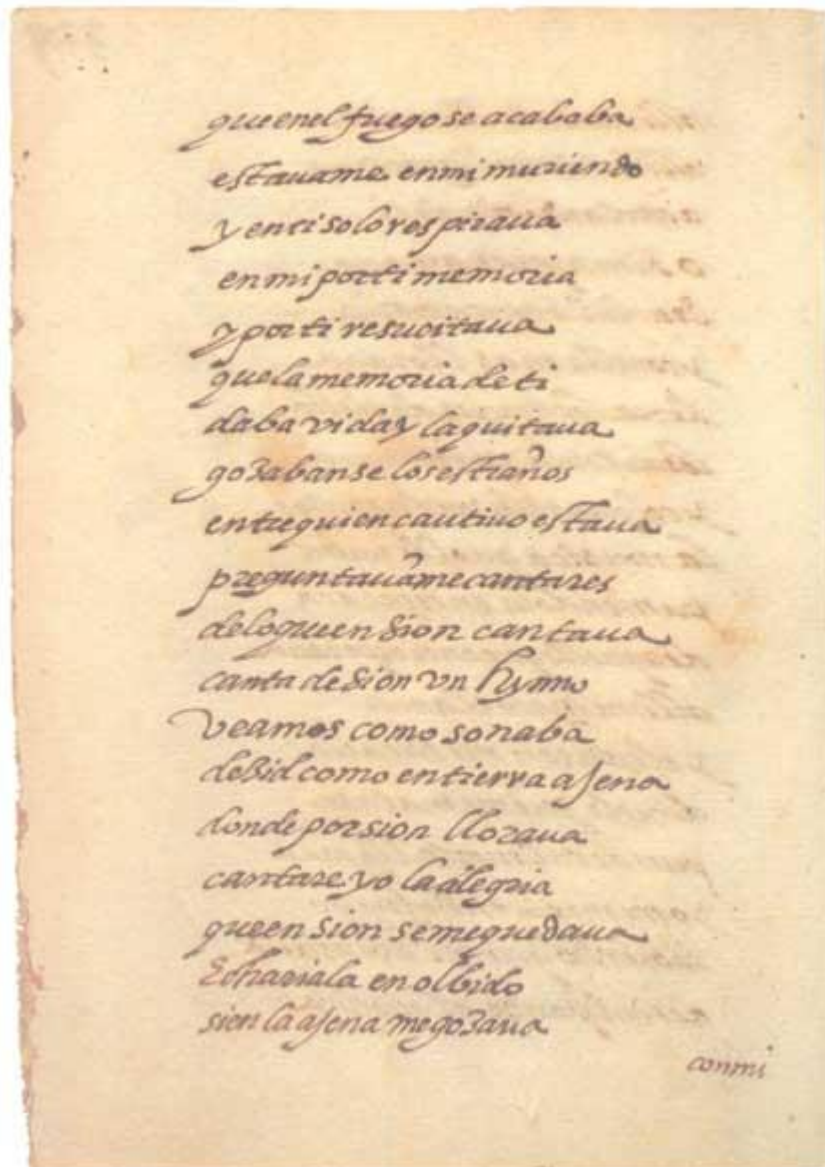 que en el fuego se acababa
estauame en mi muriendo
y en ti solo respiraua
en mi por ti me moria
y por ti resucitaua
que la memoria de ti
daba vida y la quitaua
gozaban se los estraños
entre quien cautiuo estaua
preguntauãme cantares
de lo que en Sion cantaua
canta de Sion vn hymno
veamos como sonaba
dezid como en tierra ajena
donde por sion lloraua
cantare yo la alegria
que en Sion se me quedaua
Echariala en olbido
si en la ajena me gozaua
con mi